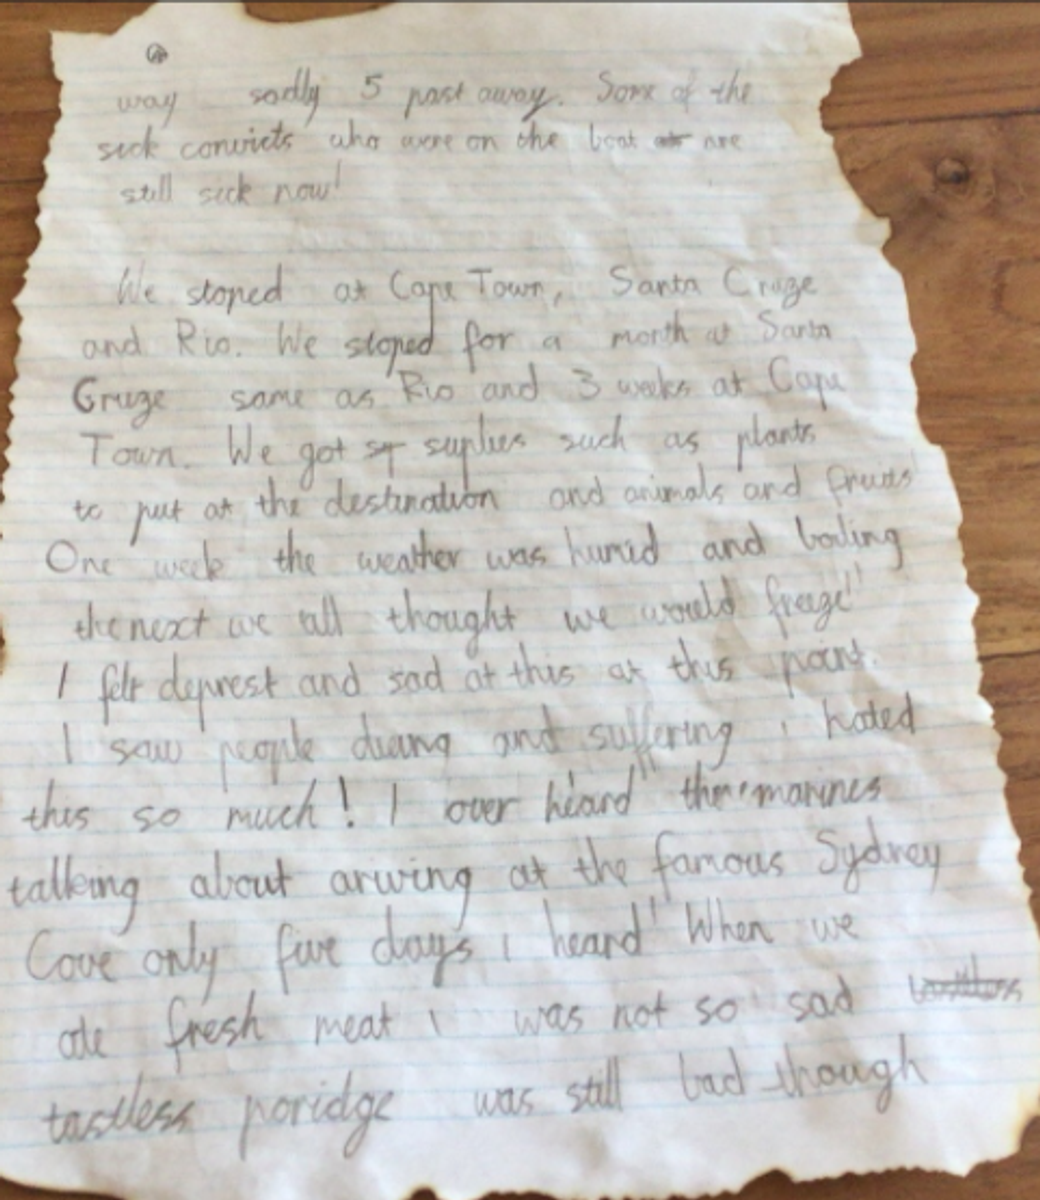 way sadly 5 past away. Some of the
sick convicts who were on the boat are
still sick now!
We stoped at Cape Town, Santa Cruze
and Rio. We stoped for a month at Santa
Gruze same as Rio and 3 weeks at Cape
Town. We got suplies such as plants
to put at the destination and animals and fruits
One week the weather was humid and boiling
the next we all thought we would freeze!
I felt deprest and sad at this at this point.
I saw people dieang and suffering i hated
this so much! I over heard" the marines
talking about ariving at the famous Sydney
Cove only five days i heard" When we
ate fresh meat i was not so sad
tastless poridge was still bad though